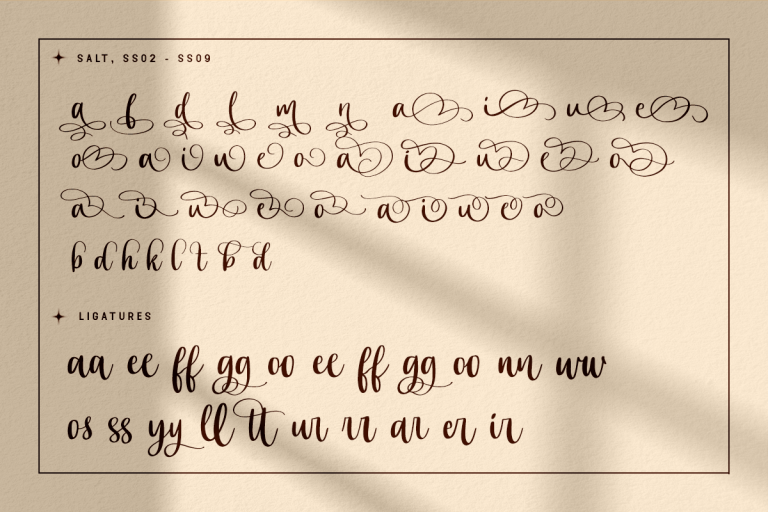 SALT, SS02 - SS09
a b d l m n a i u e
o a i u e o a i u e o
a i u e o a i u e o
b d h k l t b d
LIGATURES
aa ee ff gg oo ee ff gg oo nn ww
os ss yy ll tt ur rr ar er ir